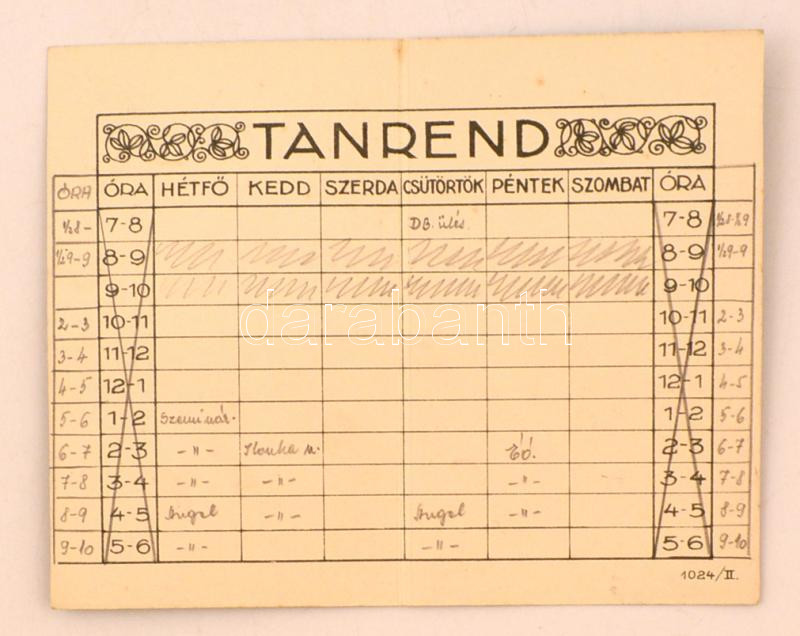 TANREND
ÓRA ÓRA HÉTFŐ KEDD SZERDA CSÜTÖRTÖK PÉNTEK SZOMBAT ÓRA
½8- 7-8 DB. ülés. 7-8
½9-9 8-9 8-9 ½9-9
9-10 9-10
2-3 10-11 10-11 2-3
3-4 11-12 11-12 3-4
4-5 12-1 12-1 4-5
5-6 1-2 Szeminár. 1-2 5-6
6-7 2-3 -„- Ilonka n. 2-3 6-7
7-8 3-4 -„- -„- -„- 3-4 7-8
8-9 4-5 Angol -„- Angol 4-5 8-9
9-10 5-6 -„- -„- 5-6 9-10
1024/II.
darabanth